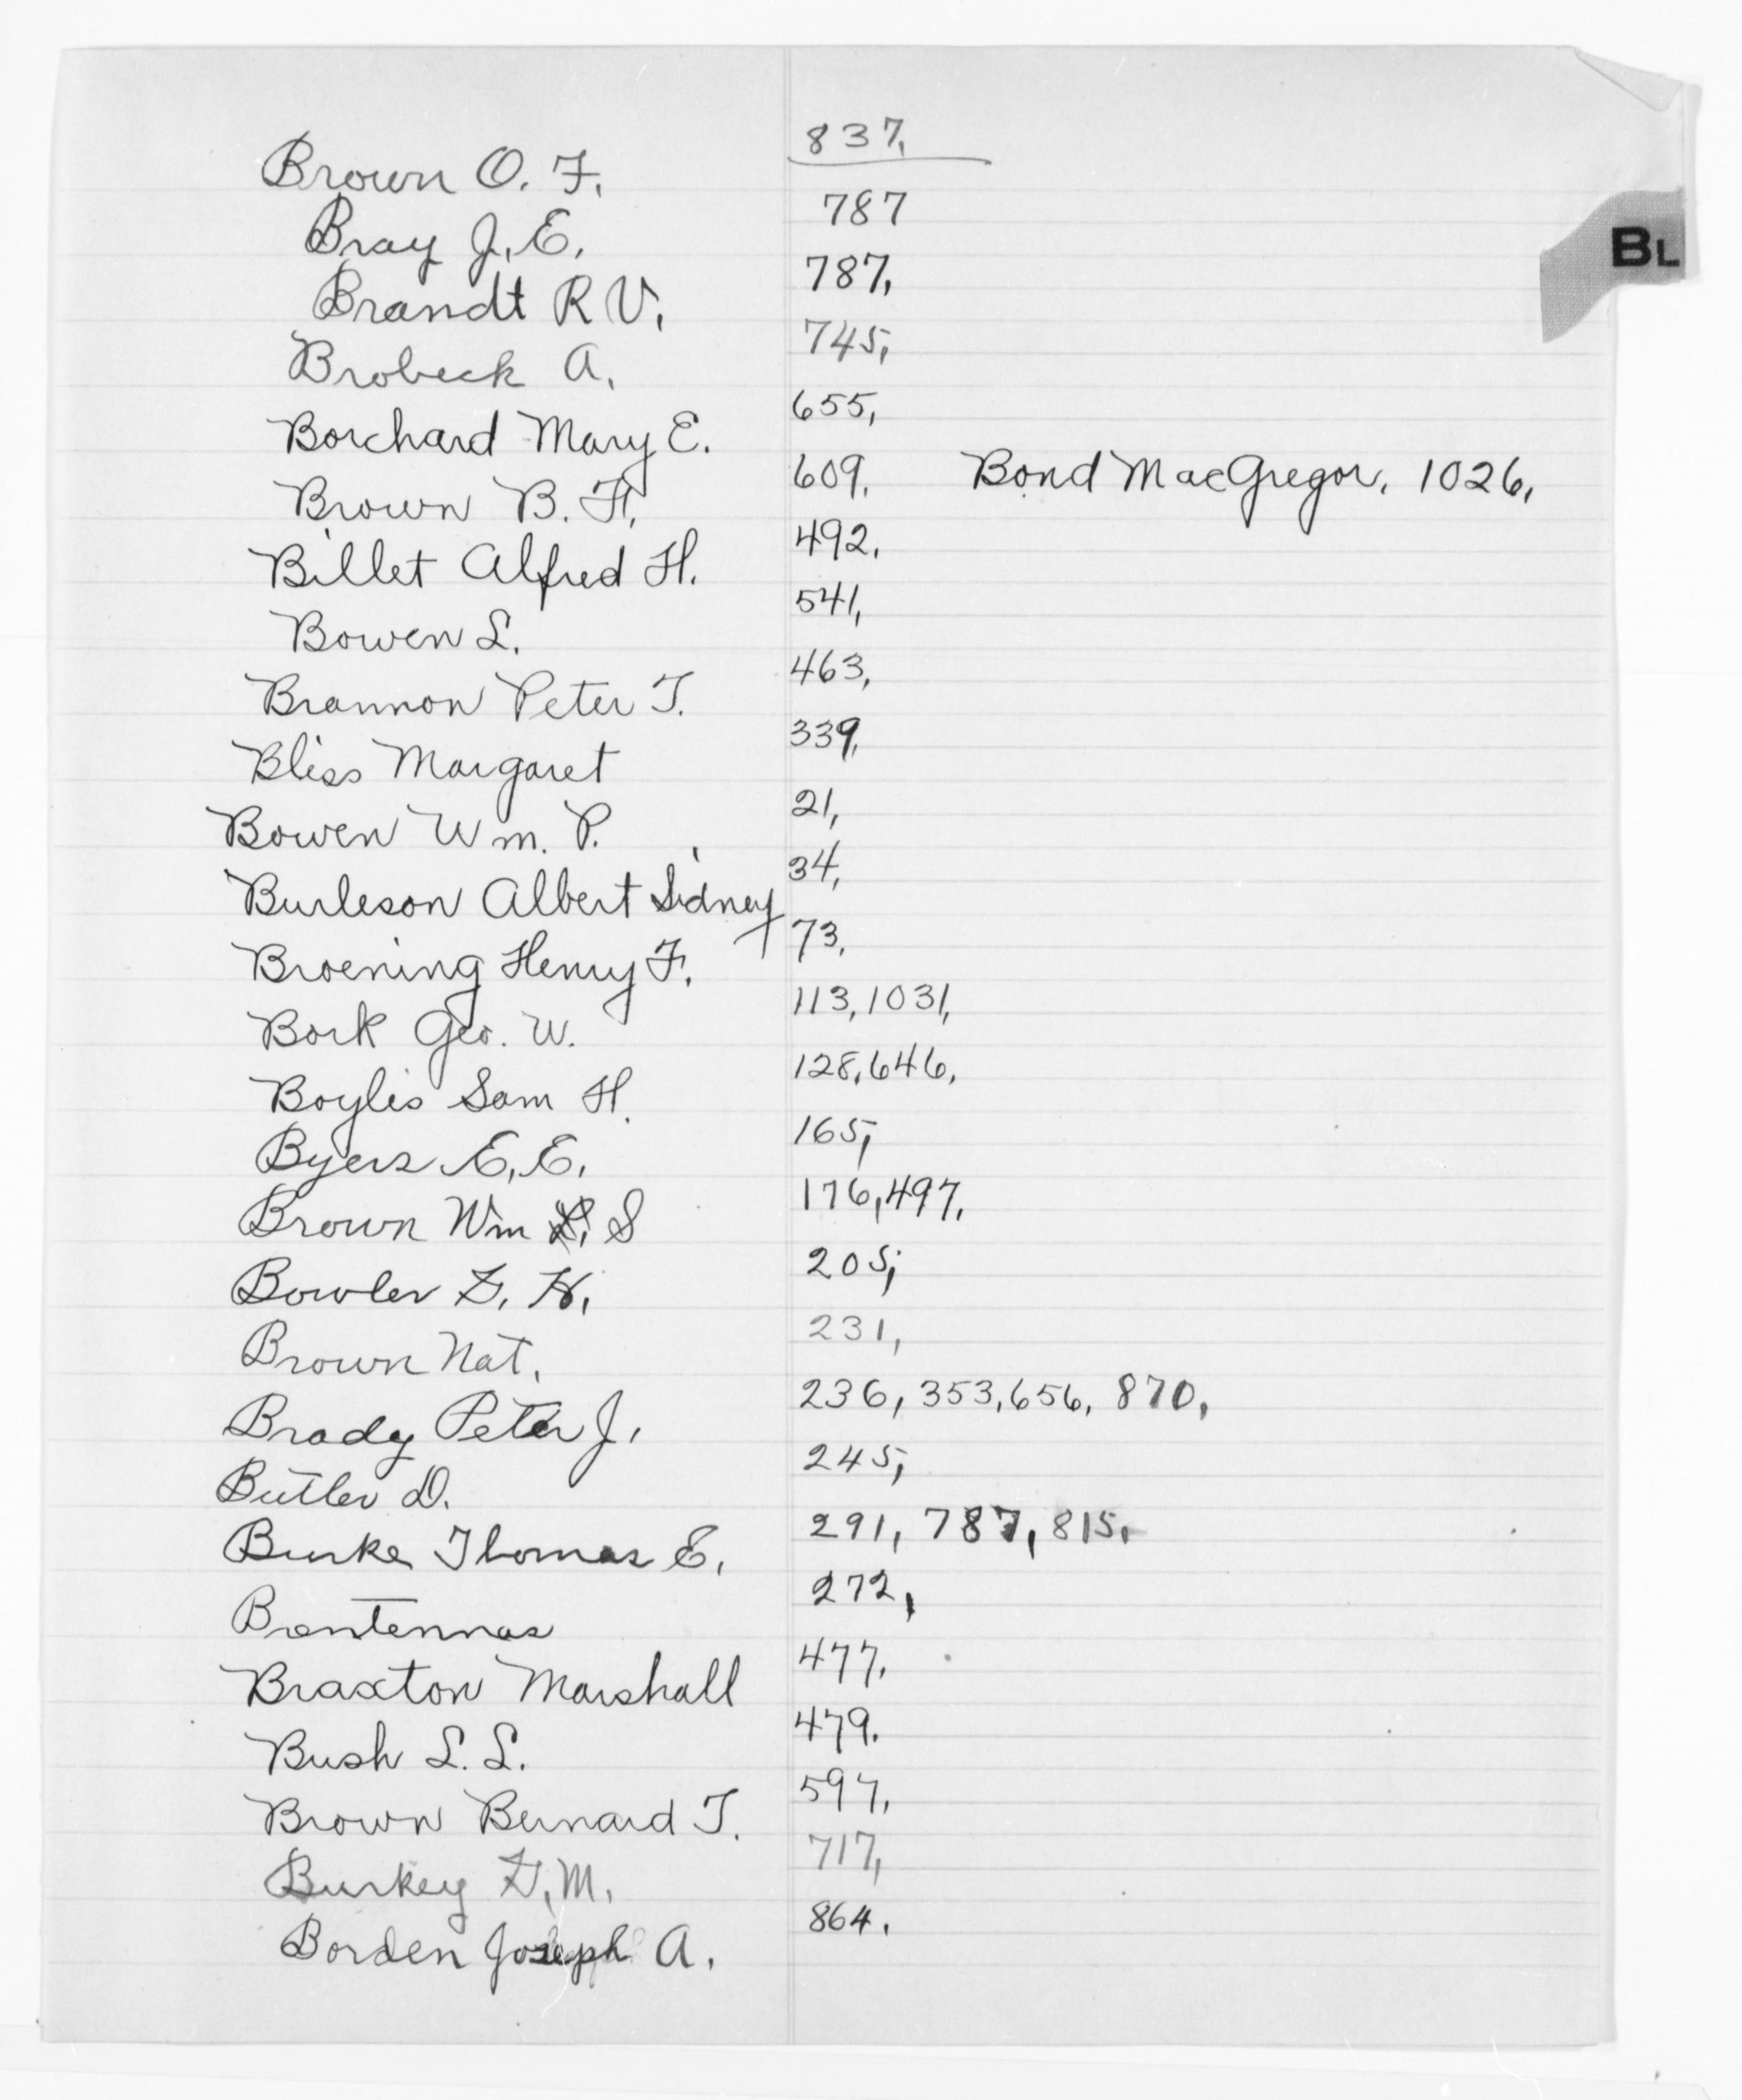 Brown O. F. 837,
Bray J. E. 787
Brandt R V. 787,
Brobeck A. 745,
Borchard Mary E. 655,
Brown B. H. 609, Bond MacGregor, 1026,
Billet Alfred H. 492,
Bowen L. 541,
Brannon Peter T. 463,
Bliss Margaret 339,
Bowen Wm. P. 21,
Burleson Albert Sidney 34,
Broening Henry F. 73,
Bork Geo. W. 113, 1031,
Boylis Sam H. 128, 646,
Byers E. E. 165,
Brown Wm S 176, 497,
Bowler F. H. 205,
Brown Nat. 231,
Brady Peter J. 236, 353, 656, 870,
Butler D. 245,
Burke Thomas E. 291, 787, 815,
272,
Braxton Marshall 477,
Bush L. L. 479.
Brown Bernard T. 597,
Burkey F. M. 717,
Borden Joseph A. 864.
BL